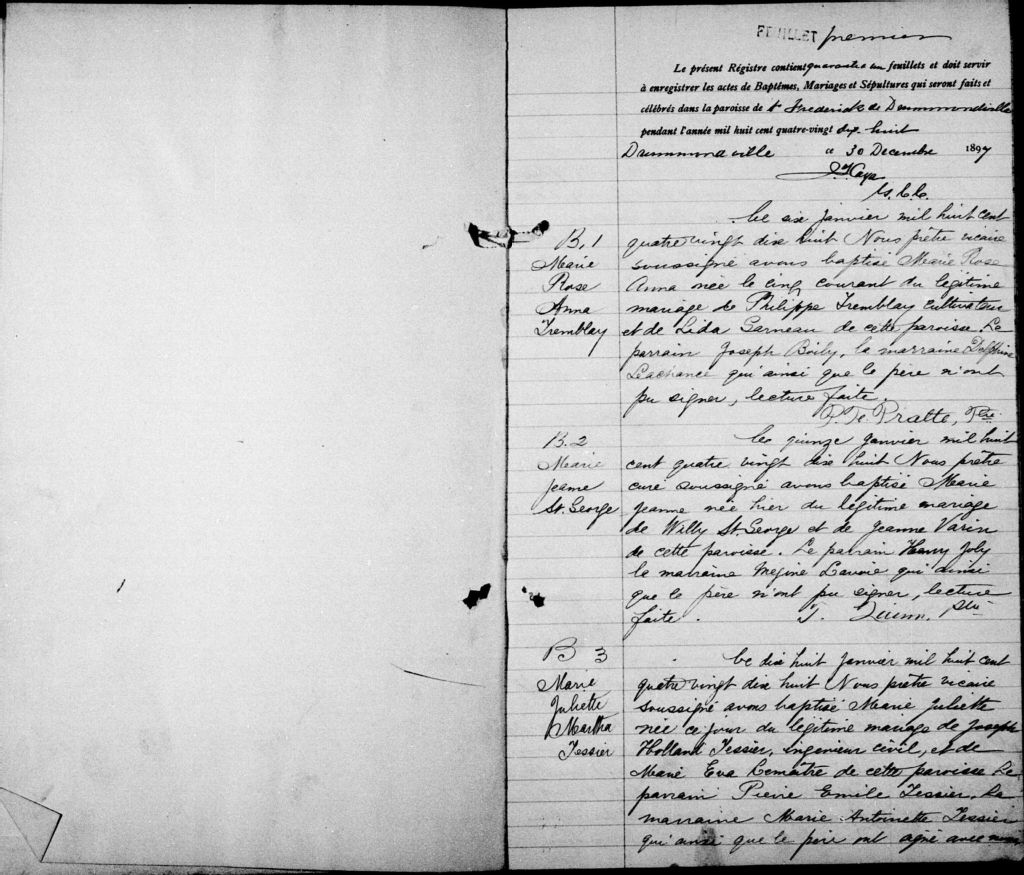 FEUILLET premier
Le présent Régistre contient quarante un feuillets et doit servir
à enregistrer les actes de Baptêmes, Mariages et Sépultures qui seront faits et
célébrés dans la paroisse de St Frederick de Drummondville
pendant l'année mil huit cent quatre-vingt dix huit
Drummondville ce 30 Decembre 1897
B. 1
Marie
Rose
Anna
Tremblay
Le six janvier mil huit cent
quatre vingt dix huit Nous prêtre vicaire
soussigné avons baptisé Marie Rose
Anna née le cinq courant du légitime
mariage de Philippe Tremblay cultivateur
et de Lida Garneau de cette paroisse. Le
parrain Joseph Boily, la marraine Delphine
Lachance qui ainsi que le père n'ont
pu signer, lecture faite.
Pratte, Ptre.
B. 2
Marie
Jeanne
St. George
Le quinze janvier mil huit
cent quatre vingt dix huit Nous prêtre
curé soussigné avons baptisé Marie
Jeanne née hier du légitime mariage
de Willy St. George et de Jeanne Varin
de cette paroisse. Le parrain Henry Joly
la marraine Lavoie qui ainsi
que le père n'ont pu signer, lecture
faite. T. Quinn, ptre
B 3
Marie
Juliette
Martha
Tessier
Le dix huit Janvier mil huit cent
quatre vingt dix huit Nous prêtre vicaire
soussigné avons baptisé Marie Juliette
née ce jour du légitime mariage de Joseph
Holland Tessier, ingenieur civil, et de
Marie Eva Lemaître de cette paroisse Le
parrain Pierre Emile Tessier, la
marraine Marie Antoinette Tessier
qui ainsi que le père ont signé avec nous